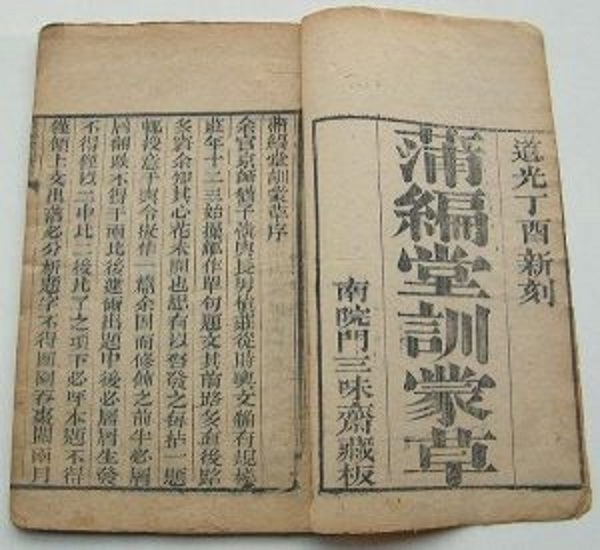 道光丁酉新刻
蒲編堂訓蒙草
南院門三味齋藏板
蒲編堂訓蒙草序
余官京師猶子與長男植莊從時文猶有規模
莊年十二三始操觚作單句題文其前路多直後路
多余知其心花未開也思有以啓發之每拈一題
授意于令擬作一篇余因而修飾之前半必層
層不得于兩比後進出題中後必層層生發
不得徑以二中比二後比了之項下必本題不得
領上文出落必分析題字不得囫圇吞棗閱兩月